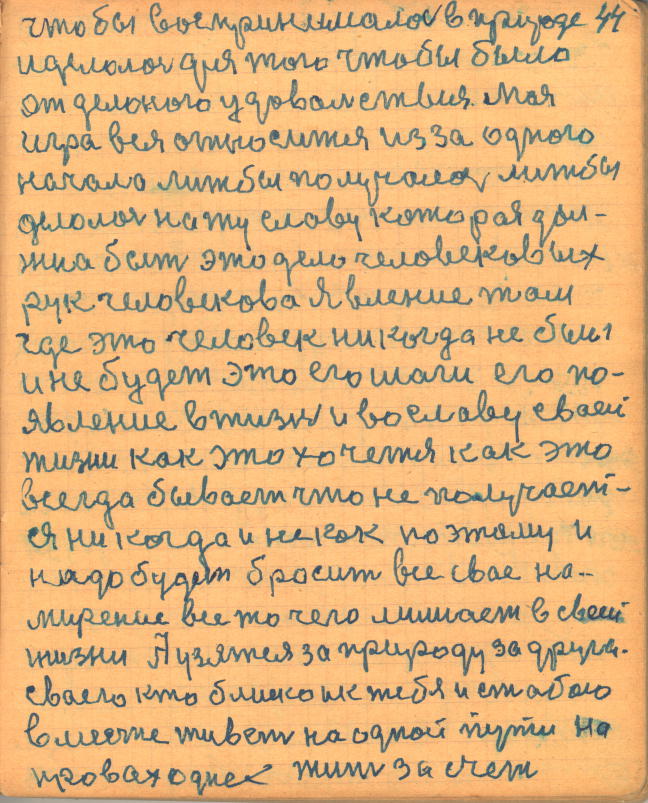 чтобы воспринималос в природе 44
и делолос для того чтобы было
отделоного удоволствия. Моя
игра вся относится из за одного
начало лижбы получалос лижбы
делолос на ту славу которая дол-
жна быт это дело человековых
рук человекова явление там
где это человек никогда не был
и не будет это его шаги его по-
явление в жизн и во славу своей
жизни как это хочется как это
всегда бывает что не получает-
ся никогда и некок поэтому и
надо будет бросит все свае на-
мирение все то чего мишает в своей
жизни А узятся за природу за друга-
сваего кто блиско ик тебя и стабою
вместе живет на одной пути на
провах однех жит за счет